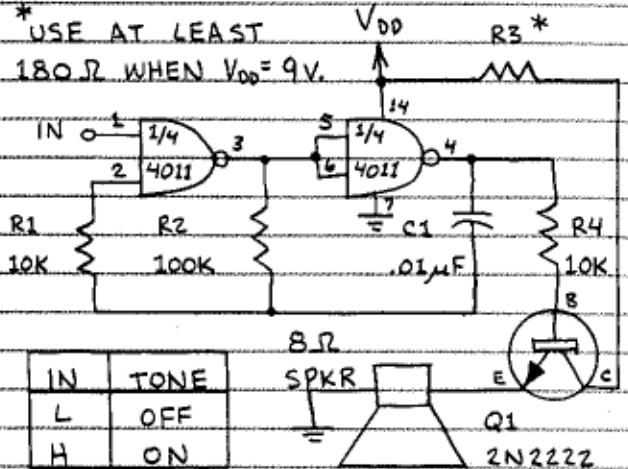 *USE AT LEAST
180Ω WHEN V_DD = 9V.
V_DD
R3 *
14
IN
1
1/4
4011
2
3
5
1/4
6
4011
4
7
R1
10K
R2
100K
C1
.01µF
R4
10K
B
8Ω
SPKR
E
C
Q1
2N2222
IN TONE
L OFF
H ON